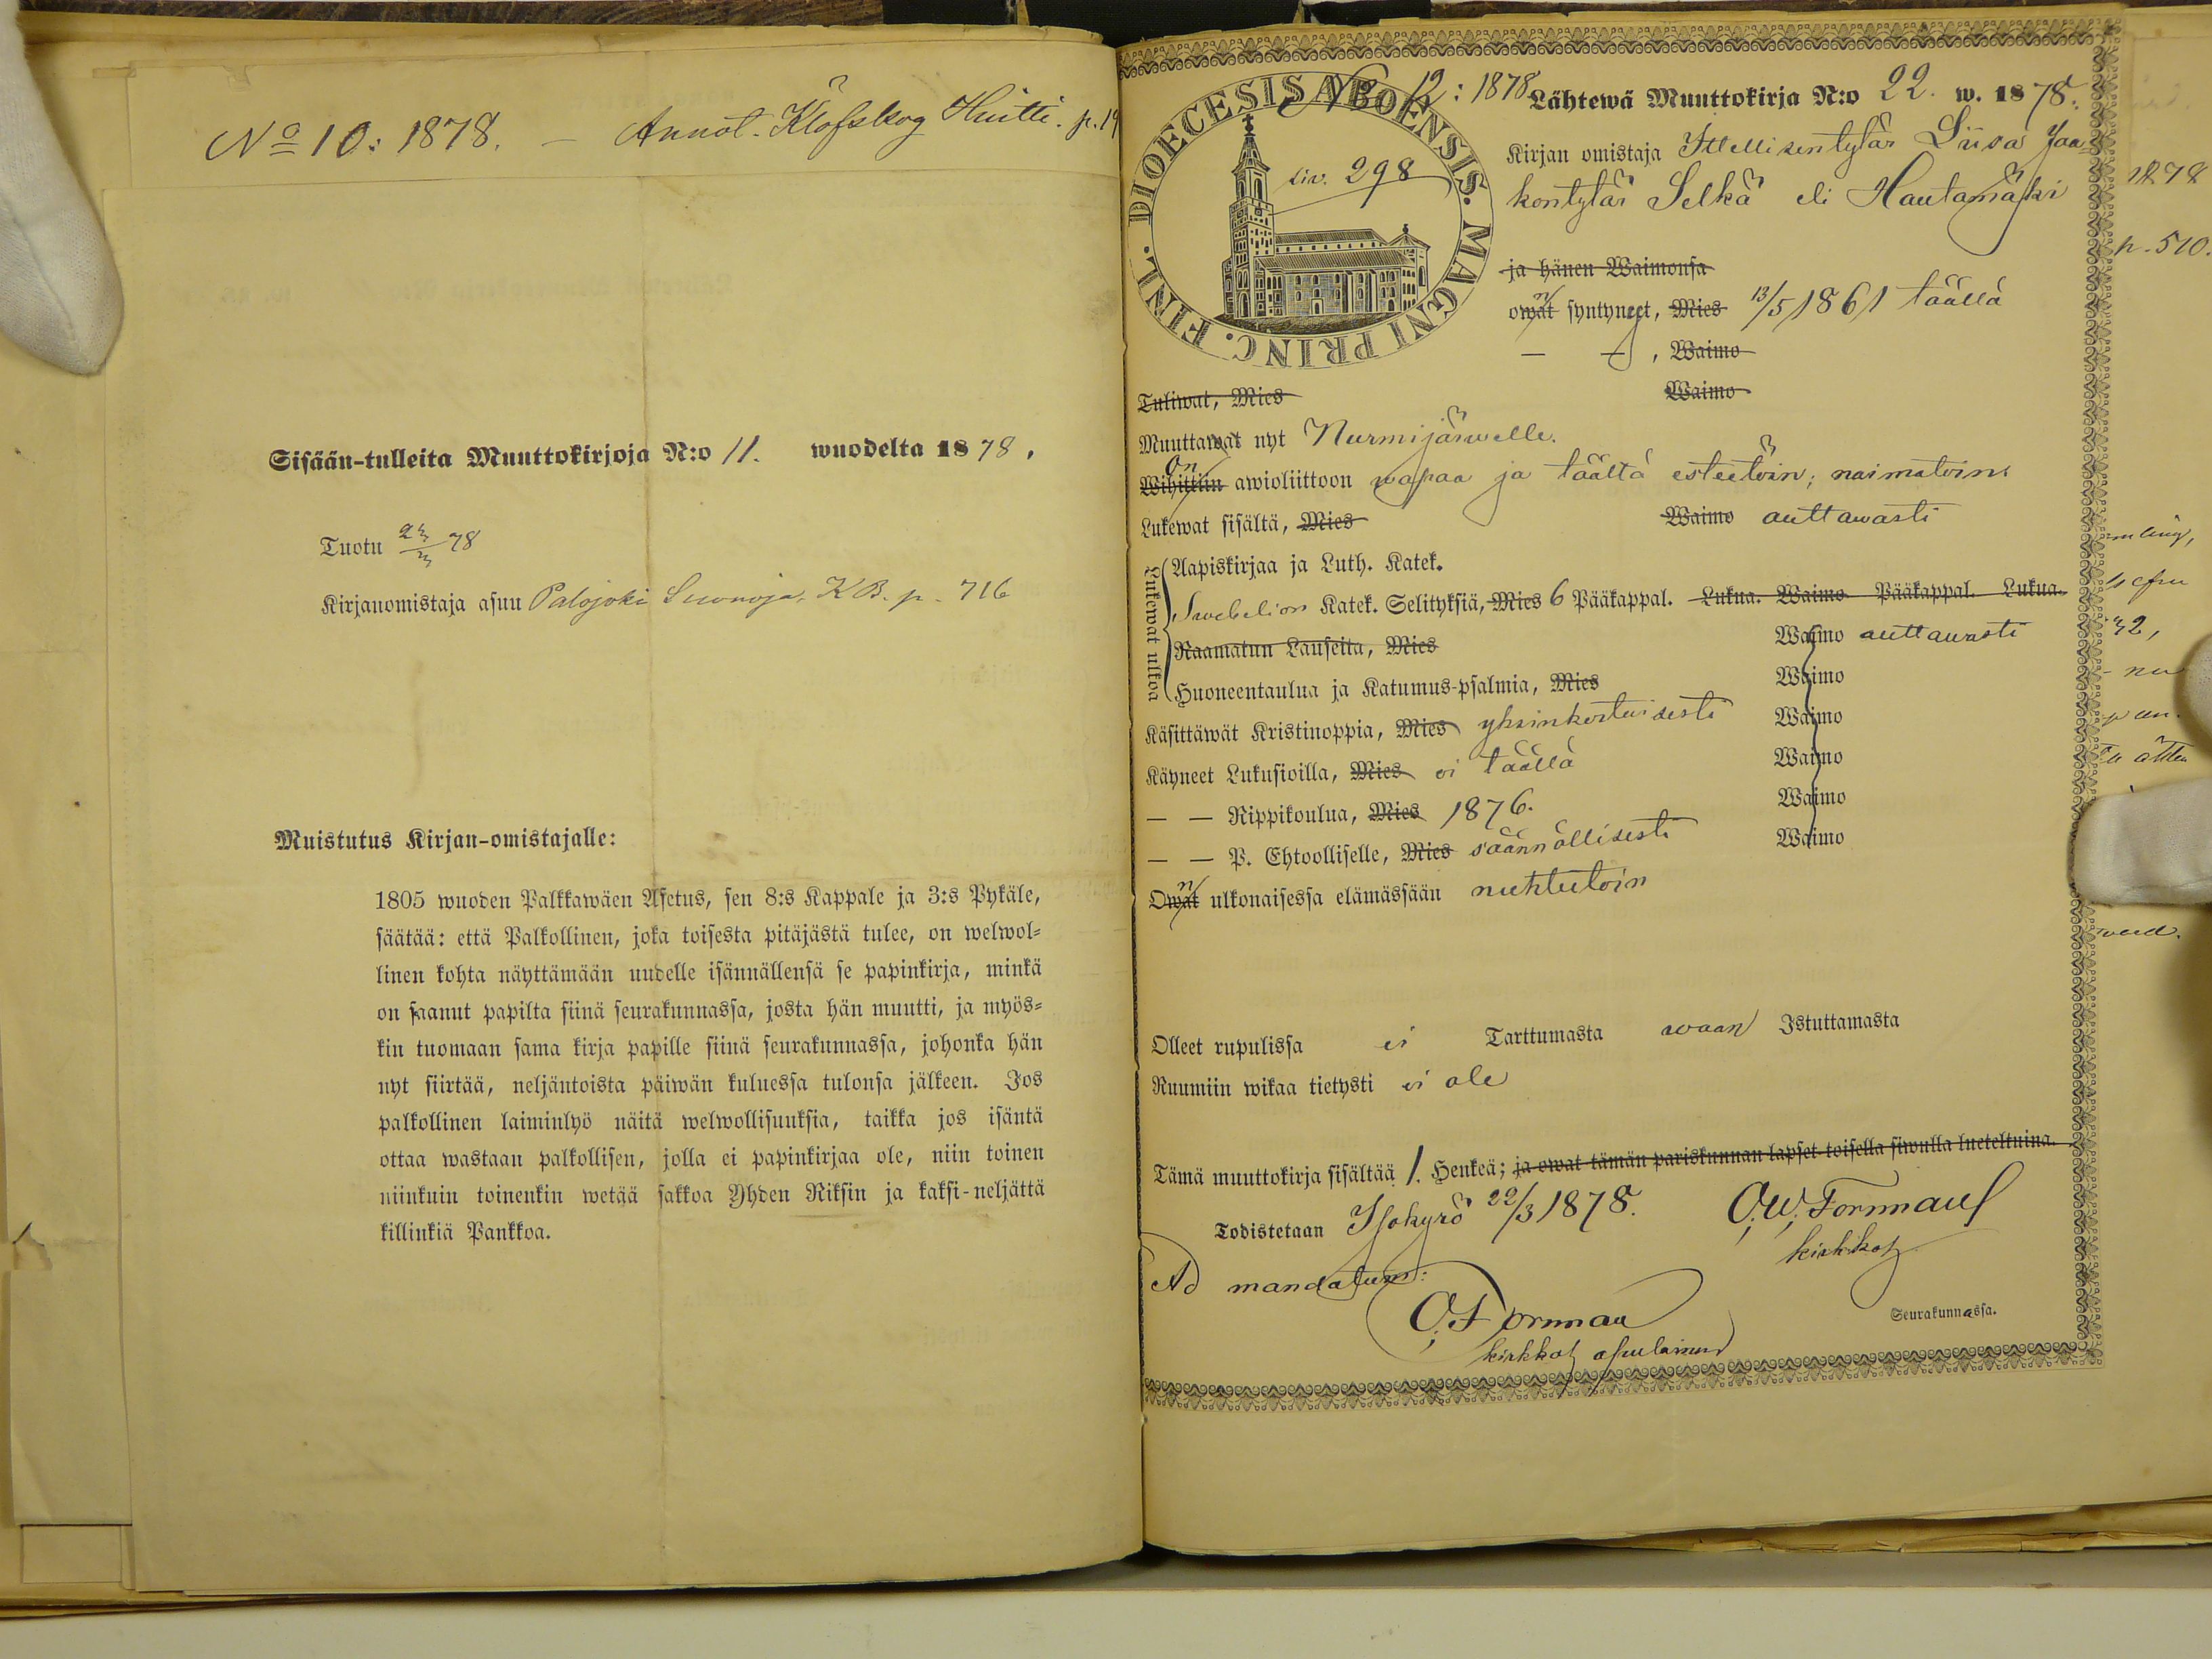 No 10: 1878. — Annot. Klöfskog Huitti. p. 19
Sisään-tulleita Muuttokirjoja N:o 11. wuodelta 1878.
Tuotu 23/3 78
Kirjanomistaja asuu Palojoki Suonoja, KB. p. 716
Muistutus Kirjan-omistajalle:
1805 wuoden Palkkawäen Asetus, sen 8:s Kappale ja 3:s Pykäle,
säätää: että Palkollinen, joka toisesta pitäjästä tulee, on welwol=
linen kohta näyttämään uudelle isännällensä se papinkirja, minkä
on saanut papilta siinä seurakunnassa, josta hän muutti, ja myös=
kin tuomaan sama kirja papille siinä seurakunnassa, johonka hän
nyt siirtää, neljäntoista päiwän kuluessa tulonsa jälkeen. Jos
palkollinen laiminlyö näitä welwollisuuksia, taikka jos isäntä
ottaa wastaan palkollisen, jolla ei papinkirjaa ole, niin toinen
niinkuin toinenkin wetää sakkoa Yhden Riksin ja kaksi-neljättä
killinkiä Pankkoa.
No 12: 1878
FINL. DIOECESIS ABOENSIS. MAGNI PRINC.
siv. 298
Lähtewä Muuttokirja N:o 22. w. 1878.
Kirjan omistaja Ittellisentytär Liisa Jaa=
kontytär Selkä eli Hautamäki
ja hänen Waimonsa
owat n syntyneet, Mies 13/5 1861 täällä
— — , Waimo
Tuliwat, Mies Waimo
Muuttawat nyt Nurmijärwelle.
On
Wihittiin awioliittoon wapaa ja täältä esteetöin; naimatoin
Lukewat sisältä, Mies Waimo auttawasti
Lukewat ulkoa
Aapiskirjaa ja Luth. Katek.
Swebelion Katek. Selityksiä, Mies 6 Pääkappal. Lukua. Waimo Pääkappal. Lukua.
Raamatun Lauseita, Mies Waimo auttawasti
Huoneentaulua ja Katumus-psalmia, Mies Waimo
Käsittäwät Kristinoppia, Mies yksinkertaisesti Waimo
Käyneet Lukusioilla, Mies ei täällä Waimo
— — Rippikoulua, Mies 1876. Waimo
— — P. Ehtoolliselle, Mies säännöllisesti Waimo
Owat n ulkonaisessa elämässään nuhteetoin
Olleet rupulissa ei Tarttumasta waan Istuttamasta
Ruumiin wikaa tietysti ei ole
Tämä muuttokirja sisältää 1. Henkeä; ja owat tämän pariskunnan lapset toisella siwulla lueteltuina.
Todistetaan Isokyrö 22/3 1878. O. W. Forsman
kirkkoh
Ad mandatum:
O. Forsman
kirkkoh apulainen
Seurakunnassa.
1878
p. 510.